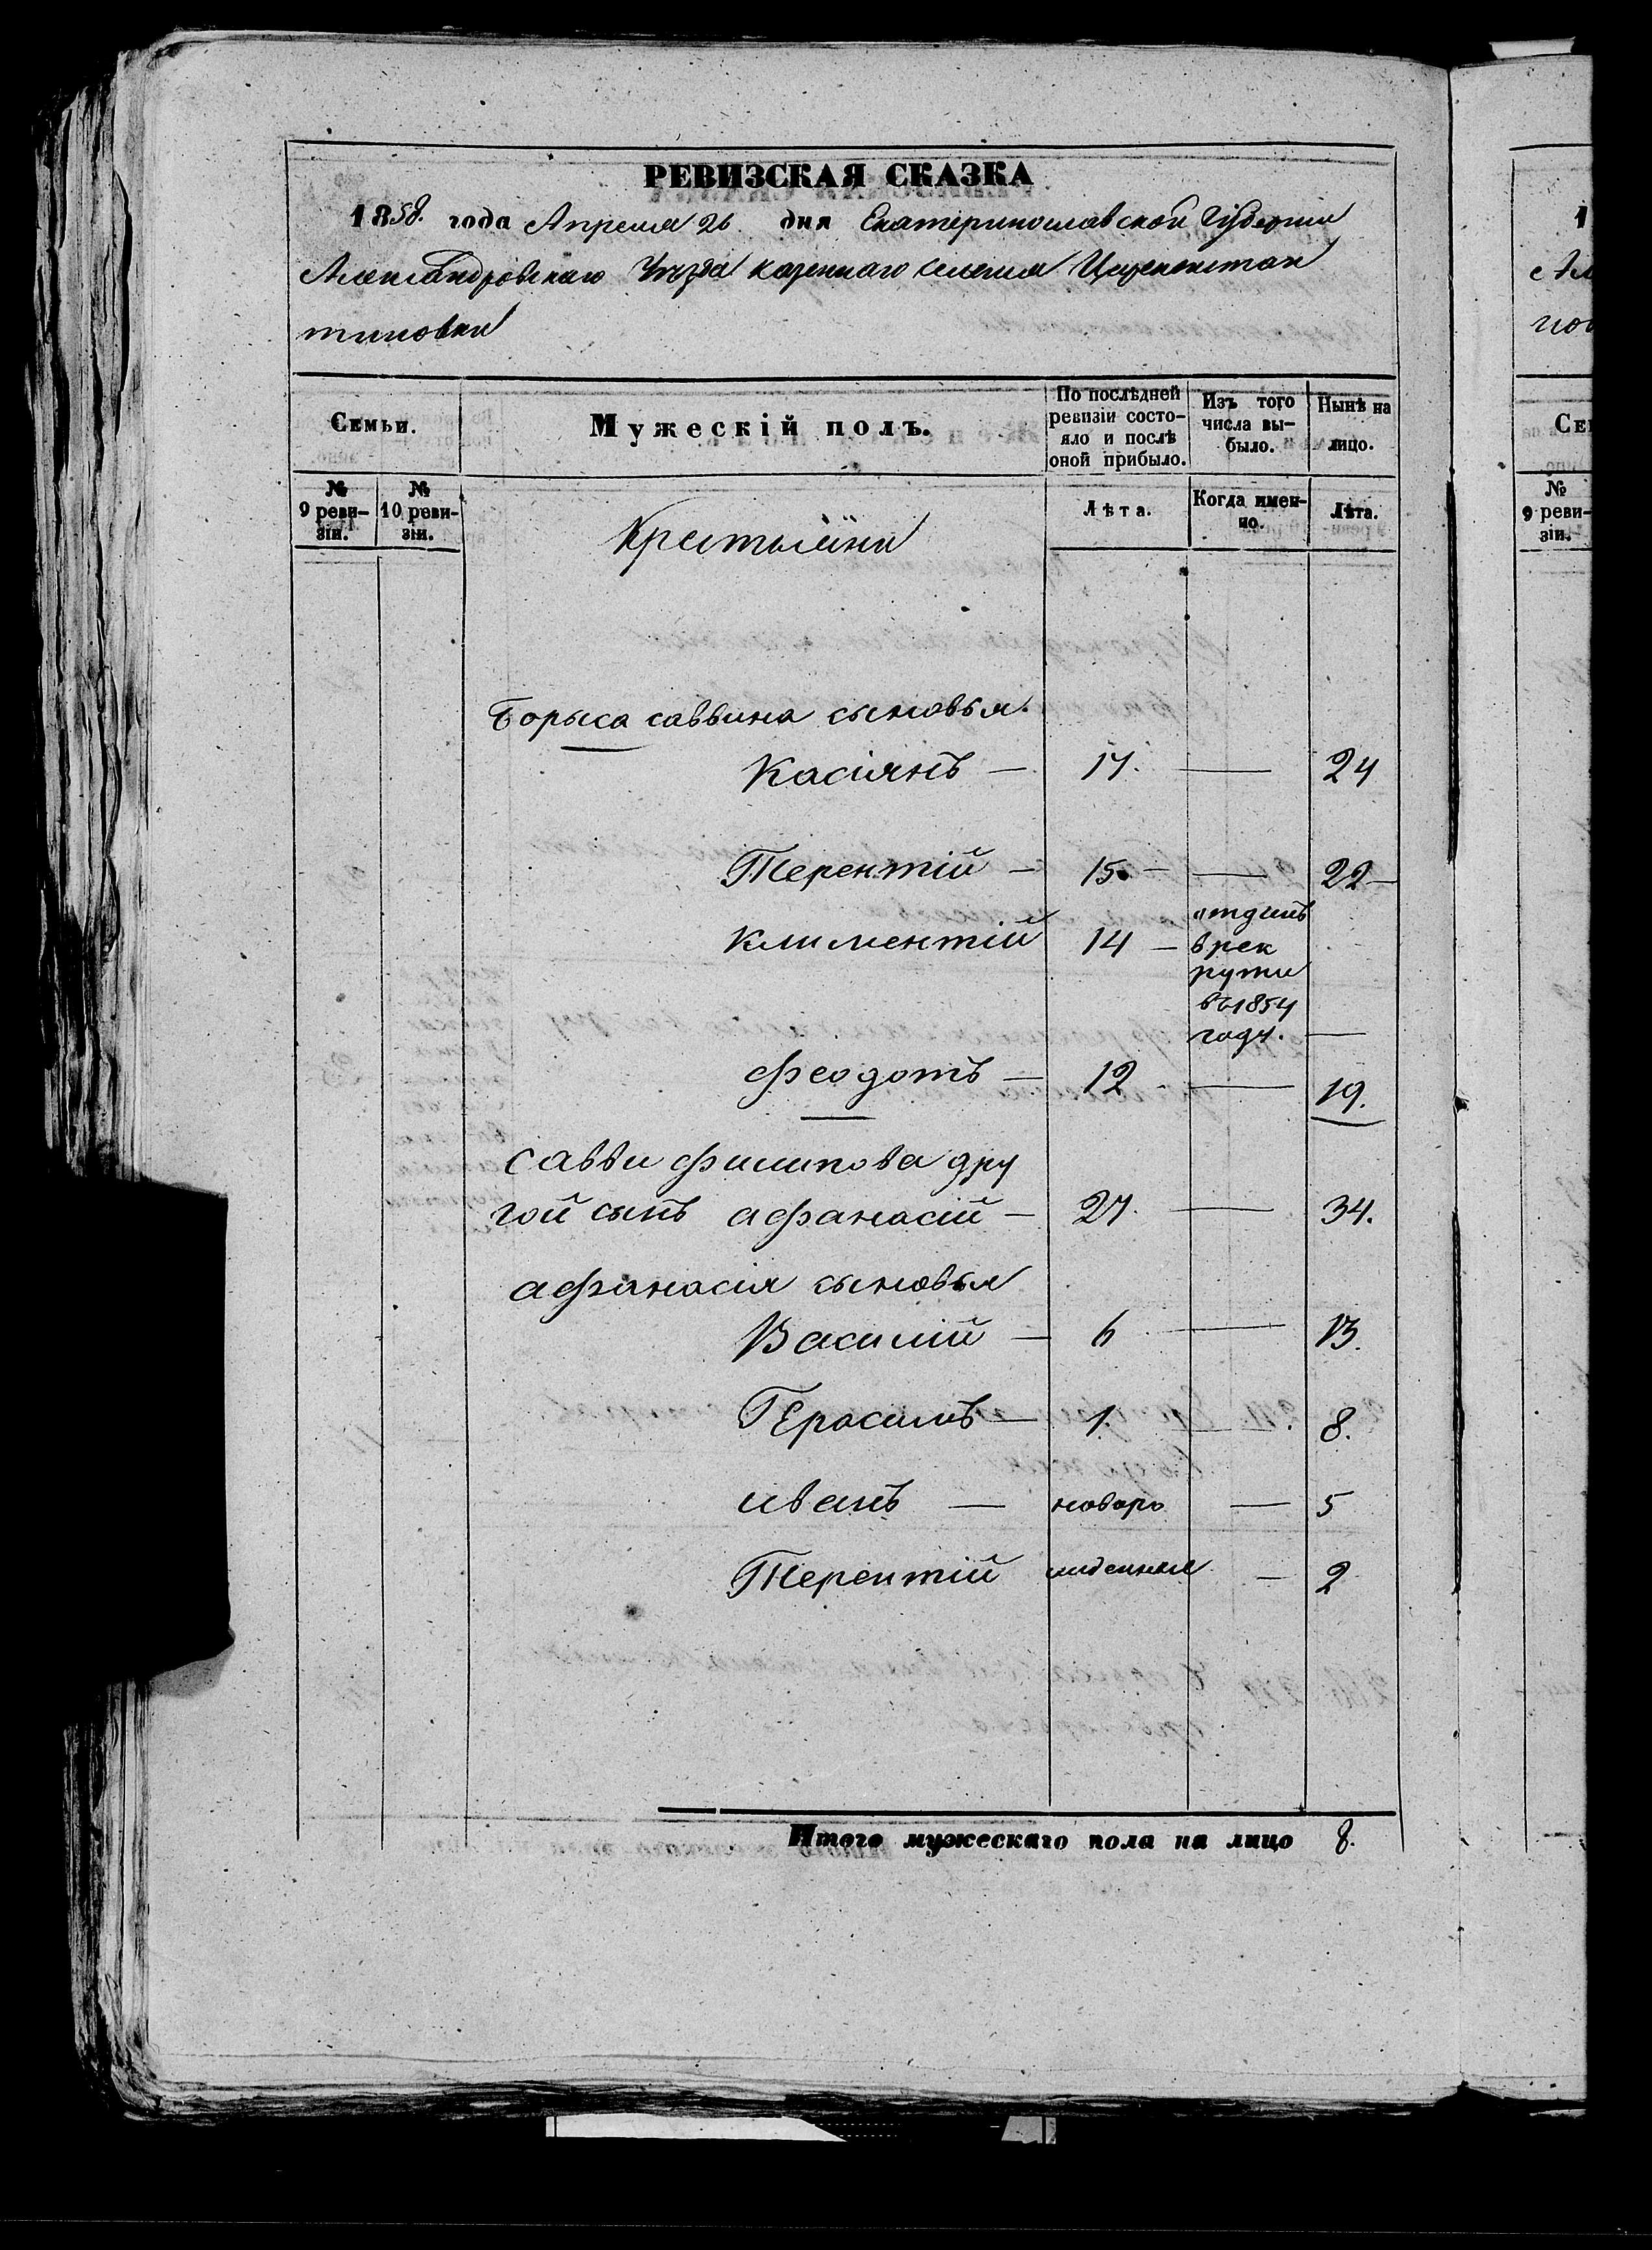 РЕВИЗСКАЯ СКАЗКА
1858. года Апреля 26 дня Екатеринославской Губернии
Александровскаго Уѣзда казеннаго селения Цареконстан
тиновки
Семьи.
Мужескій полъ.
По послѣдней ревизіи состо-
яло и послѣ
оной прибыло.
Изъ того
числа вы-
было.
Нынѣ на
лицо.
№
9 реви-
зіи.
№
10 реви-
зіи.
Крестьяни
Лѣта.
Когда имен-
но.
Лѣта.
Борыса саввина сыновья.
Касіянъ — 17. — 24
Терентій — 15. — 22
Климентій 14 — отданъ
в рек
рути
въ 1854
году. —
Феодотъ — 12 — 19.
Савви Филипова дру
гой сынъ афанасій — 27. — 34.
афанасія сыновья
Василій — 6 — 13.
Герасимъ — 1. — 8.
иванъ — новоро — 5
Терентій жденные — 2
Итого мужескаго пола на лицо 8.
1
поо
Сем
№
9 реви-
зіи.